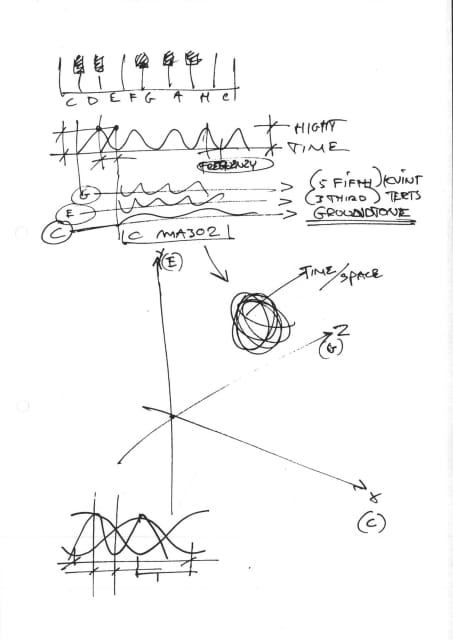 C D E F G A H C
HIGHT
TIME
FREQUENCY
G (5 FIFTH) KVINT
E (3 THIRD) TERTS
C GROUNDTONE
C MA302
Y (E)
TIME/SPACE
Z
(G)
X
(C)